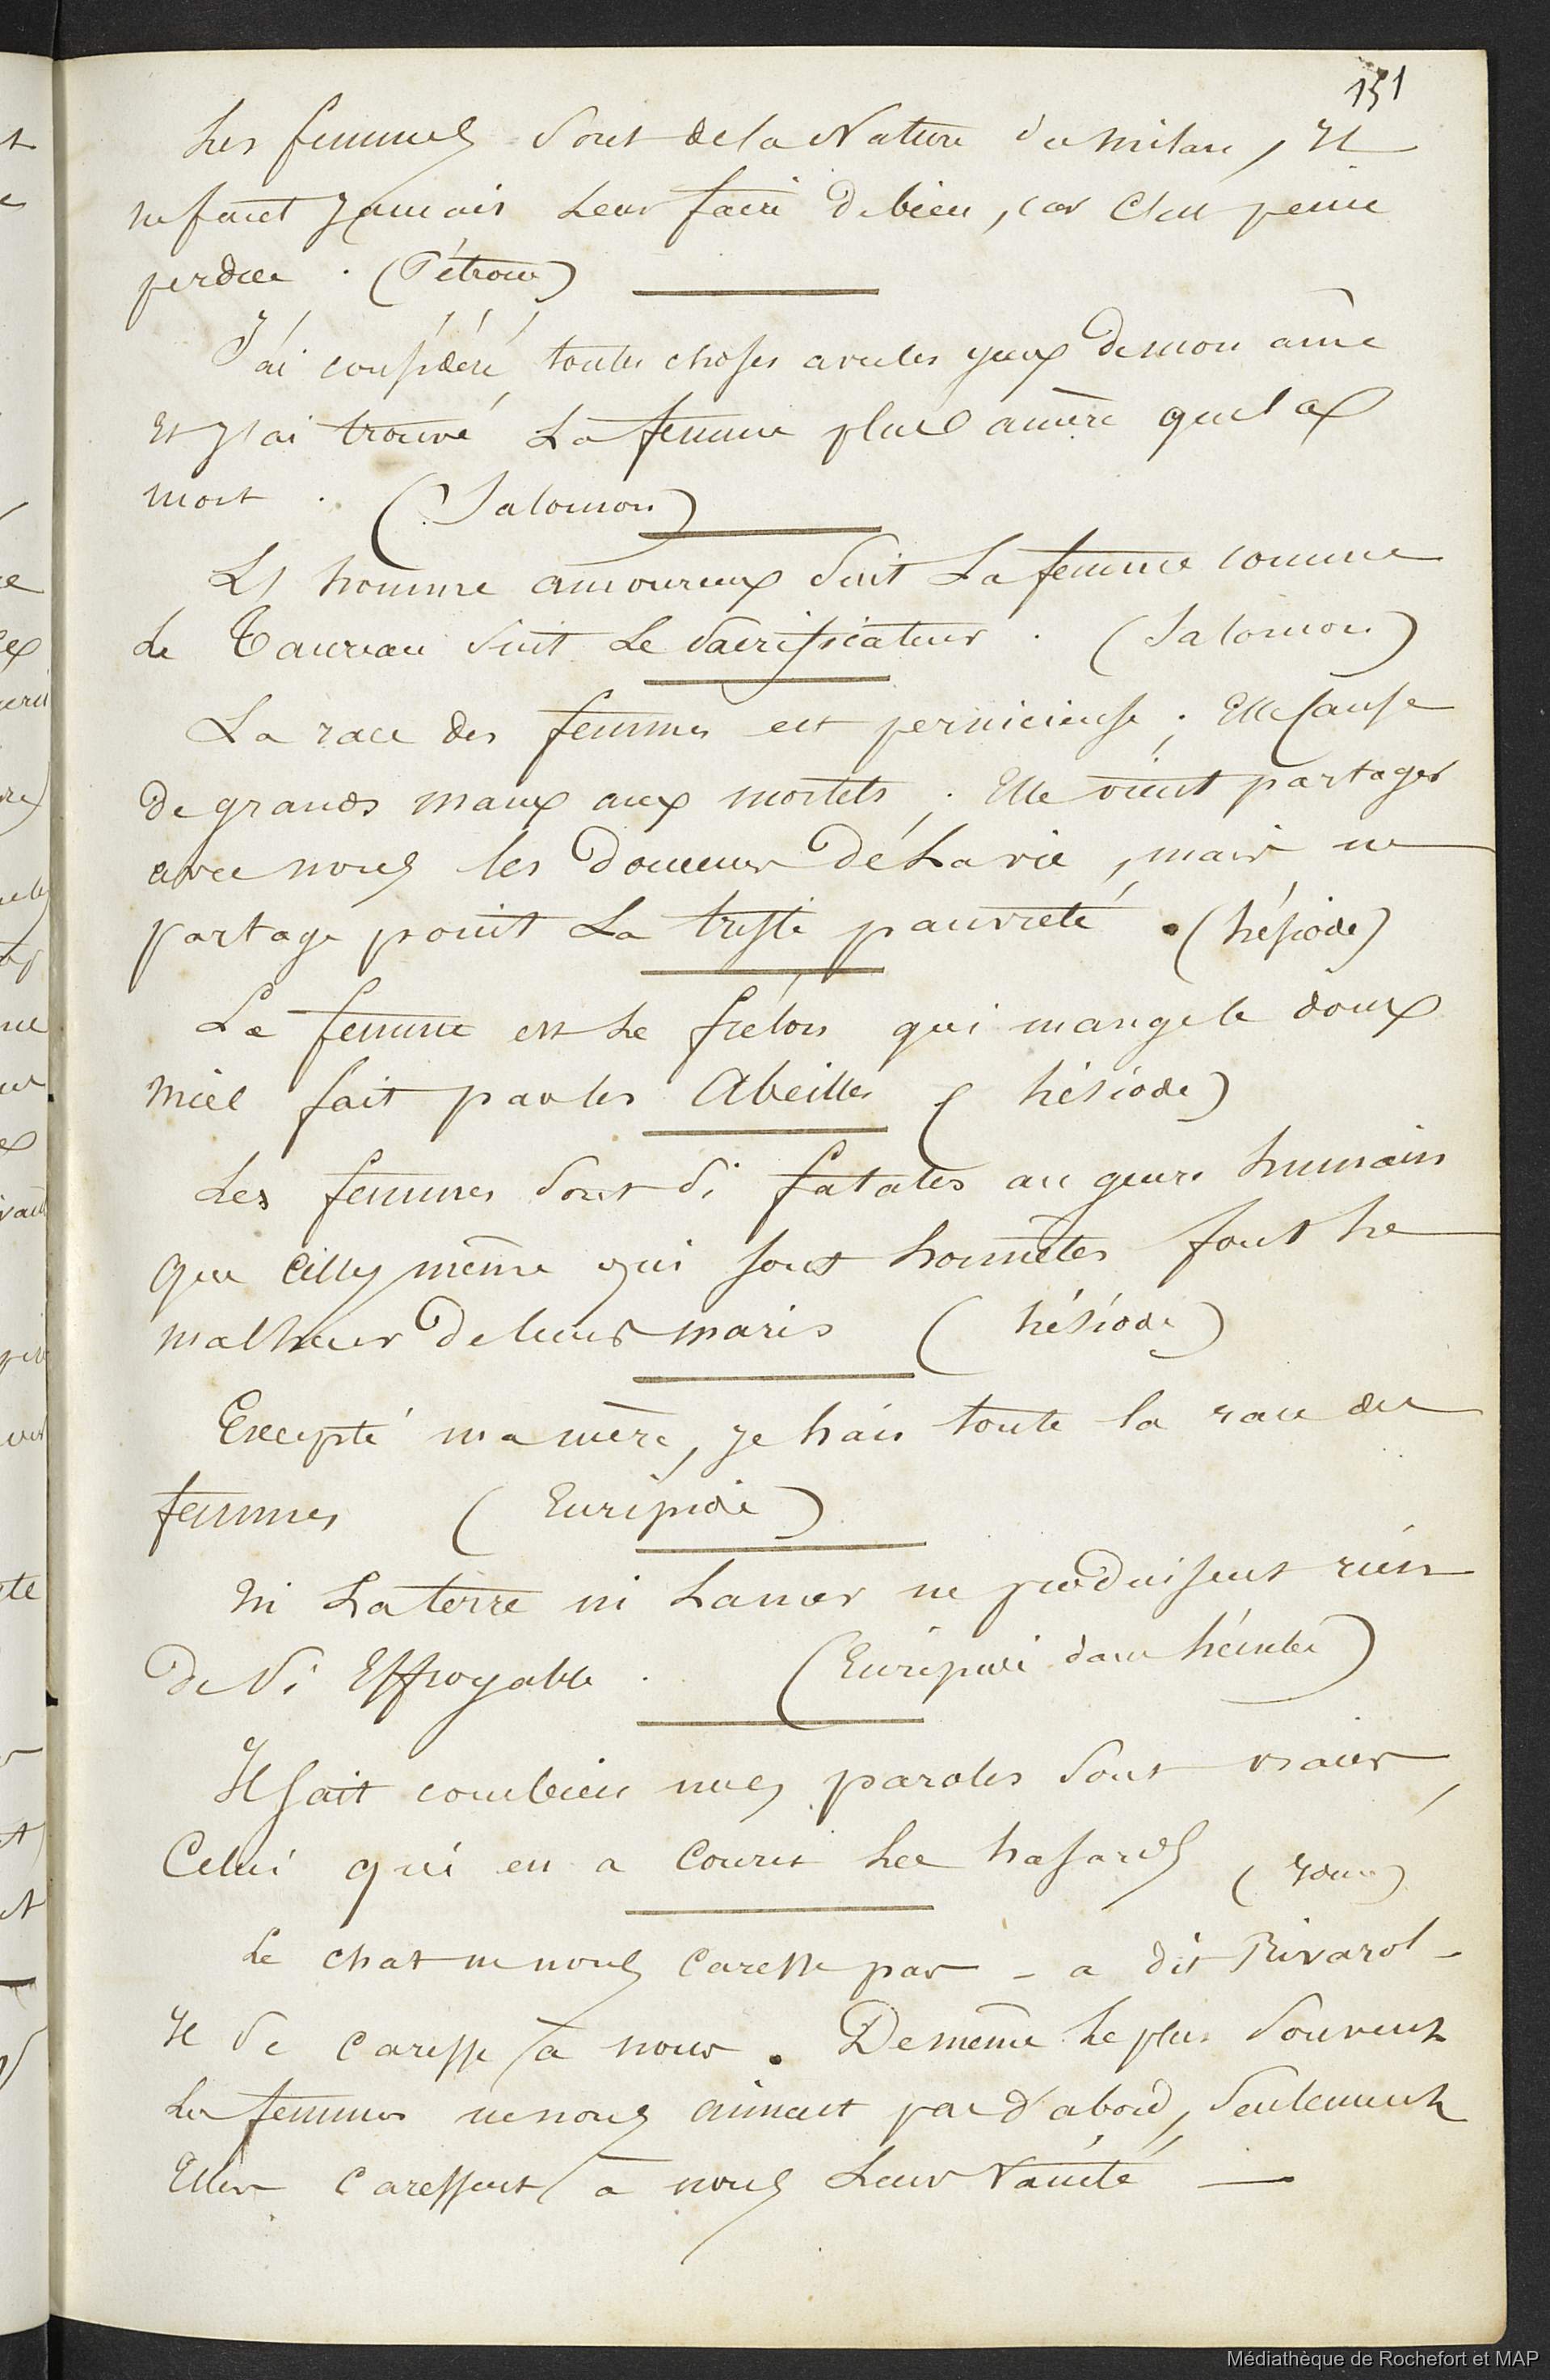 151
Les femmes sont de la Nature du milan, Il
ne faut Jamais Leur faire De bien, car C'est peine
perdue . (Pétrone)
J'ai considéré toutes choses avec les yeux De mon âme
Et J'ai trouvé La femme plus amère que la
mort . (Salomon)
L'homme amoureux Suit La femme comme
Le Taureau suit Le Sacrificateur . (Salomon)
La race des femmes est pernicieuse ; Elle Cause
De grands maux aux mortels ; Elle vient partager
avec nous les Douceurs Dé La vie, mais ne
partage point La triste pauvreté . (hésiode)
La femme est Le frélon qui mange le doux
miel fait par les Abeilles ( hésiode)
Les femmes Sont Si fatales au genre humain
Que Celles même qui sont honnêtes font Le
malheur De leurs maris ( hésiode)
Excepté ma mère, Je hais toute la race des
femmes ( Euripide )
Ni La terre ni La mer ne produisent rien
De Si Effroyable . (Euripide dans hécube)
Il sait combien mes paroles Sont vraies,
Celui qui en a Couru Les hasards
Le chat ne nous Caresse pas - a dit Rivarol -
Il Se Caresse à nous . De même Le plus Souvent
Les femmes ne nous aiment pas d'abord, Seulement
Elles Caressent à nous Leur Vanité —
Médiathèque de Rochefort et MAP